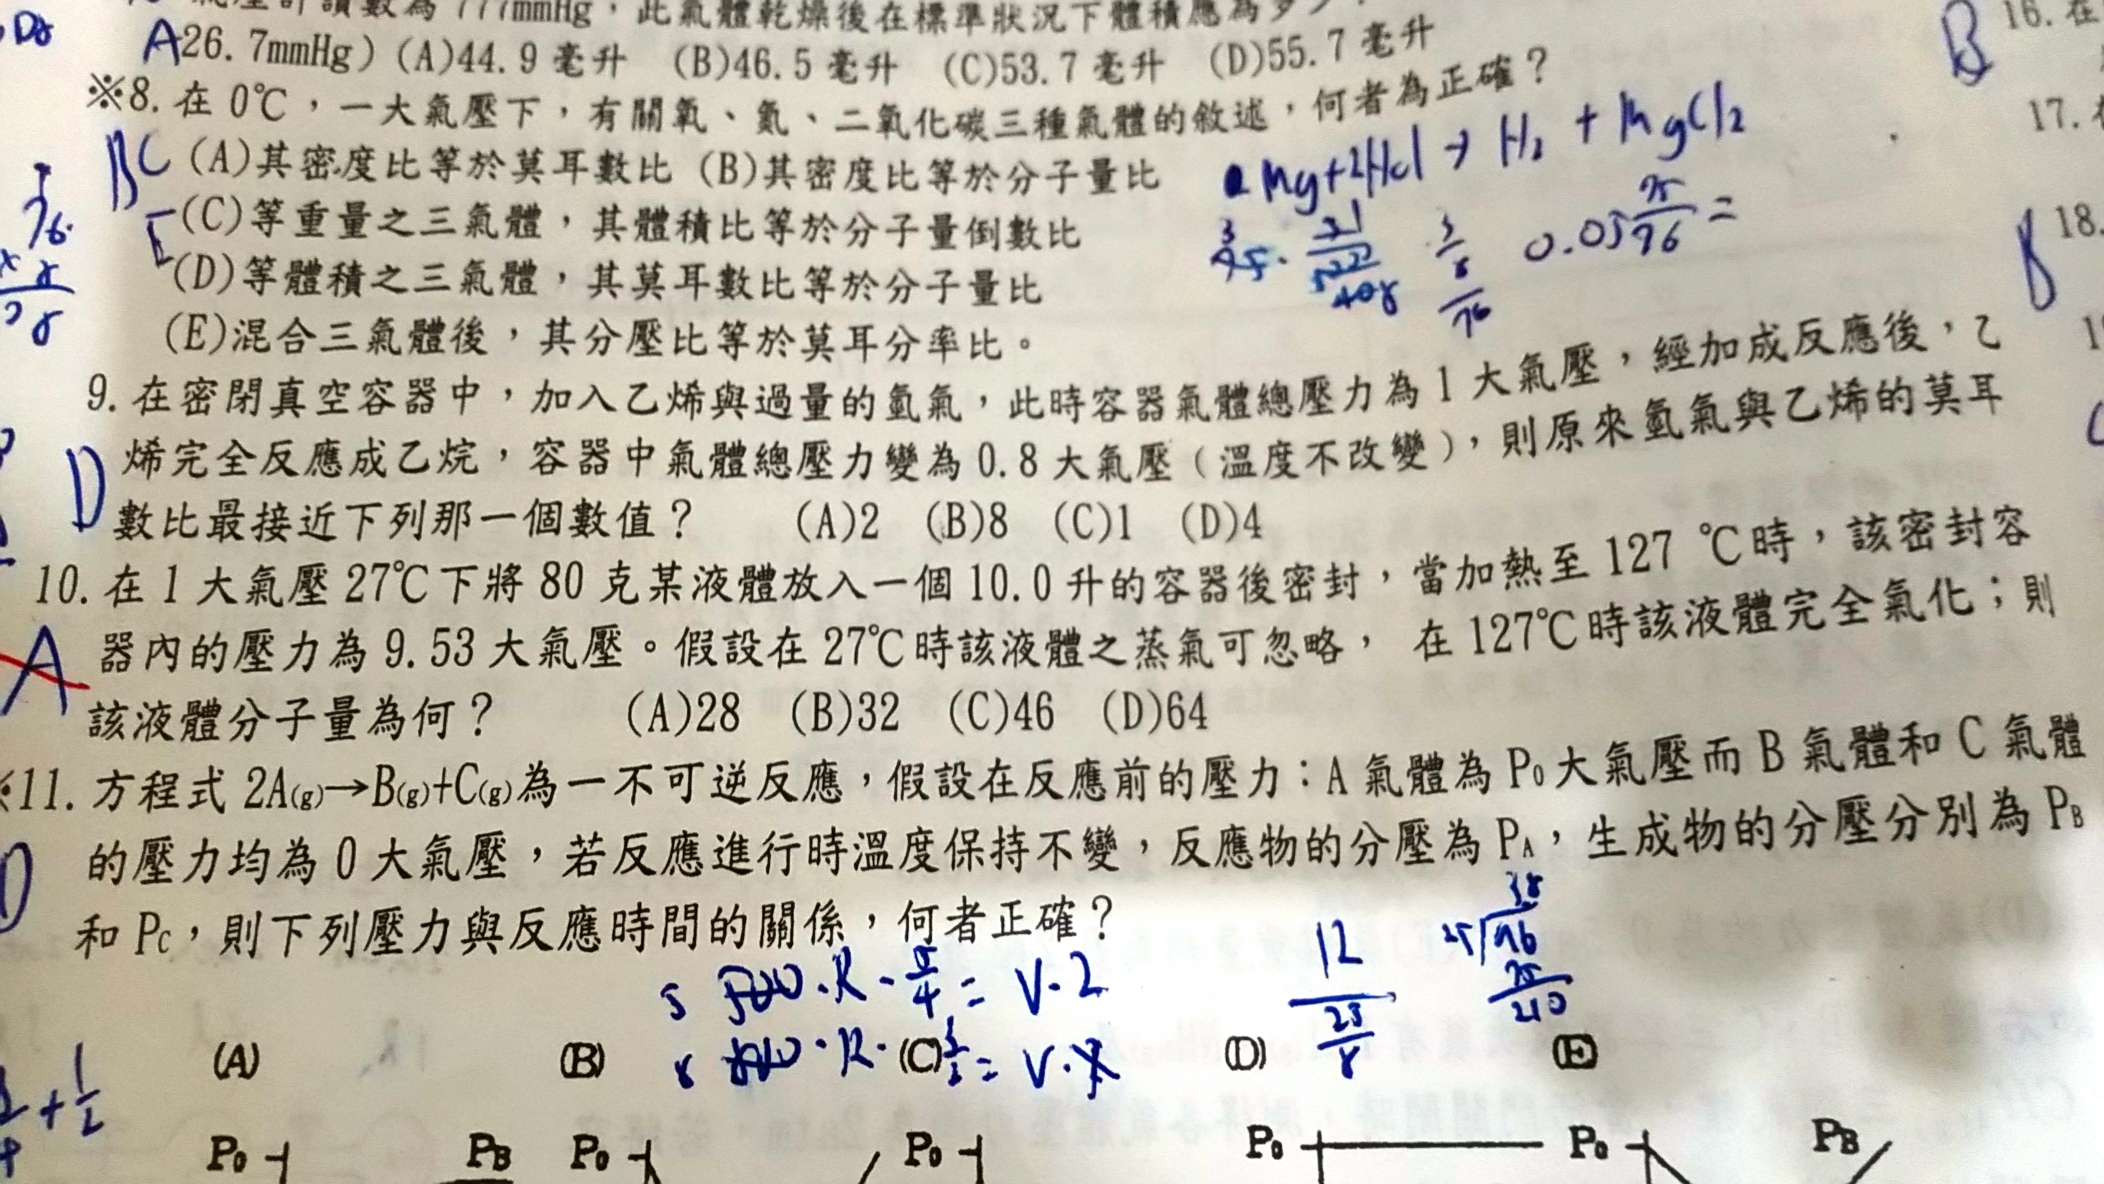 氣壓計讀數為 777mmHg，此氣體乾燥後在標準狀況下體積應為多少？
A 26.7mmHg) (A)44.9 毫升 (B)46.5 毫升 (C)53.7 毫升 (D)55.7 毫升
※8. 在 0℃，一大氣壓下，有關氧、氮、二氧化碳三種氣體的敘述，何者為正確？
BC (A)其密度比等於莫耳數比 (B)其密度比等於分子量比
E (C)等重量之三氣體，其體積比等於分子量倒數比
(D)等體積之三氣體，其莫耳數比等於分子量比
(E)混合三氣體後，其分壓比等於莫耳分率比。
Mg+2HCl → H₂ + MgCl₂
0.05 75/76 =
9. 在密閉真空容器中，加入乙烯與過量的氫氣，此時容器氣體總壓力為 1 大氣壓，經加成反應後，乙
D 烯完全反應成乙烷，容器中氣體總壓力變為 0.8 大氣壓（溫度不改變），則原來氫氣與乙烯的莫耳
數比最接近下列那一個數值？ (A)2 (B)8 (C)1 (D)4
10. 在 1 大氣壓 27℃下將 80 克某液體放入一個 10.0 升的容器後密封，當加熱至 127 ℃時，該密封容
A 器內的壓力為 9.53 大氣壓。假設在 27℃時該液體之蒸氣可忽略， 在 127℃時該液體完全氣化；則
該液體分子量為何？ (A)28 (B)32 (C)46 (D)64
※11. 方程式 2A(g)→B(g)+C(g)為一不可逆反應，假設在反應前的壓力：A 氣體為 P₀大氣壓而 B 氣體和 C 氣體
D 的壓力均為 0 大氣壓，若反應進行時溫度保持不變，反應物的分壓為 PA，生成物的分壓分別為 PB
和 PC，則下列壓力與反應時間的關係，何者正確？
·R· 5/4 = V·2
12
25/8
(A) (B) (C) (D) (E)
P₀ PB P₀ P₀ P₀ P₀ PB
B 16. 在
17.
18.